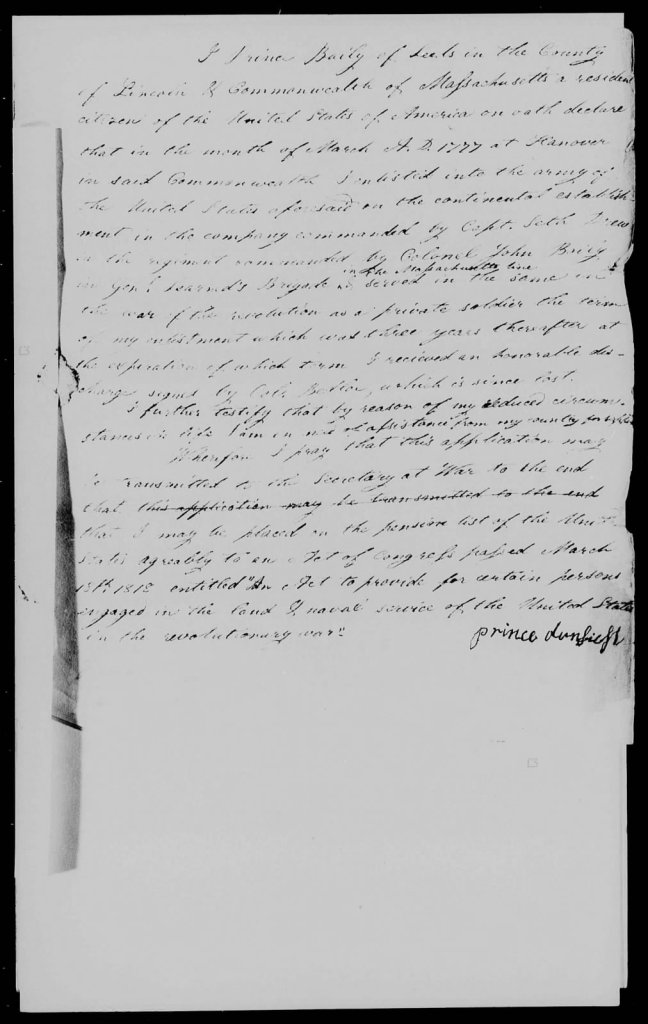 I Prince Baily of Leeds in the County
of Lincoln & Commonwealth of Massachusetts a resident
citizen of the United States of America on oath declare
that in the month of March A.D. 1777 at Hanover
in said Commonwealth I enlisted into the army of
the United States aforesaid on the continental establish-
ment in the company commanded by Capt. Seth Drew
in the regiment commanded by Colonel John
in Genl Learned's Brigade in the Massachusetts line & served in the same in
the war of the revolution as a private soldier the term
of my enlistment which was three years thereafter at
the expiration of which term I recieved an honorable dis-
charge signed by Col. which is since lost.
I further testify that by reason of my reduced circum-
stances in life I am in need of assistance from my country for
Wherefore I pray that this application may
be transmitted to the Secretary at War to the end
that this application may be transmitted to the end
that I may be placed on the pension list of the United
States agreably to an Act of Congress passed March
18th. 1818 entitled "An Act to provide for certain persons
engaged in the land & naval service of the United States
in the revolutionary war."
prince